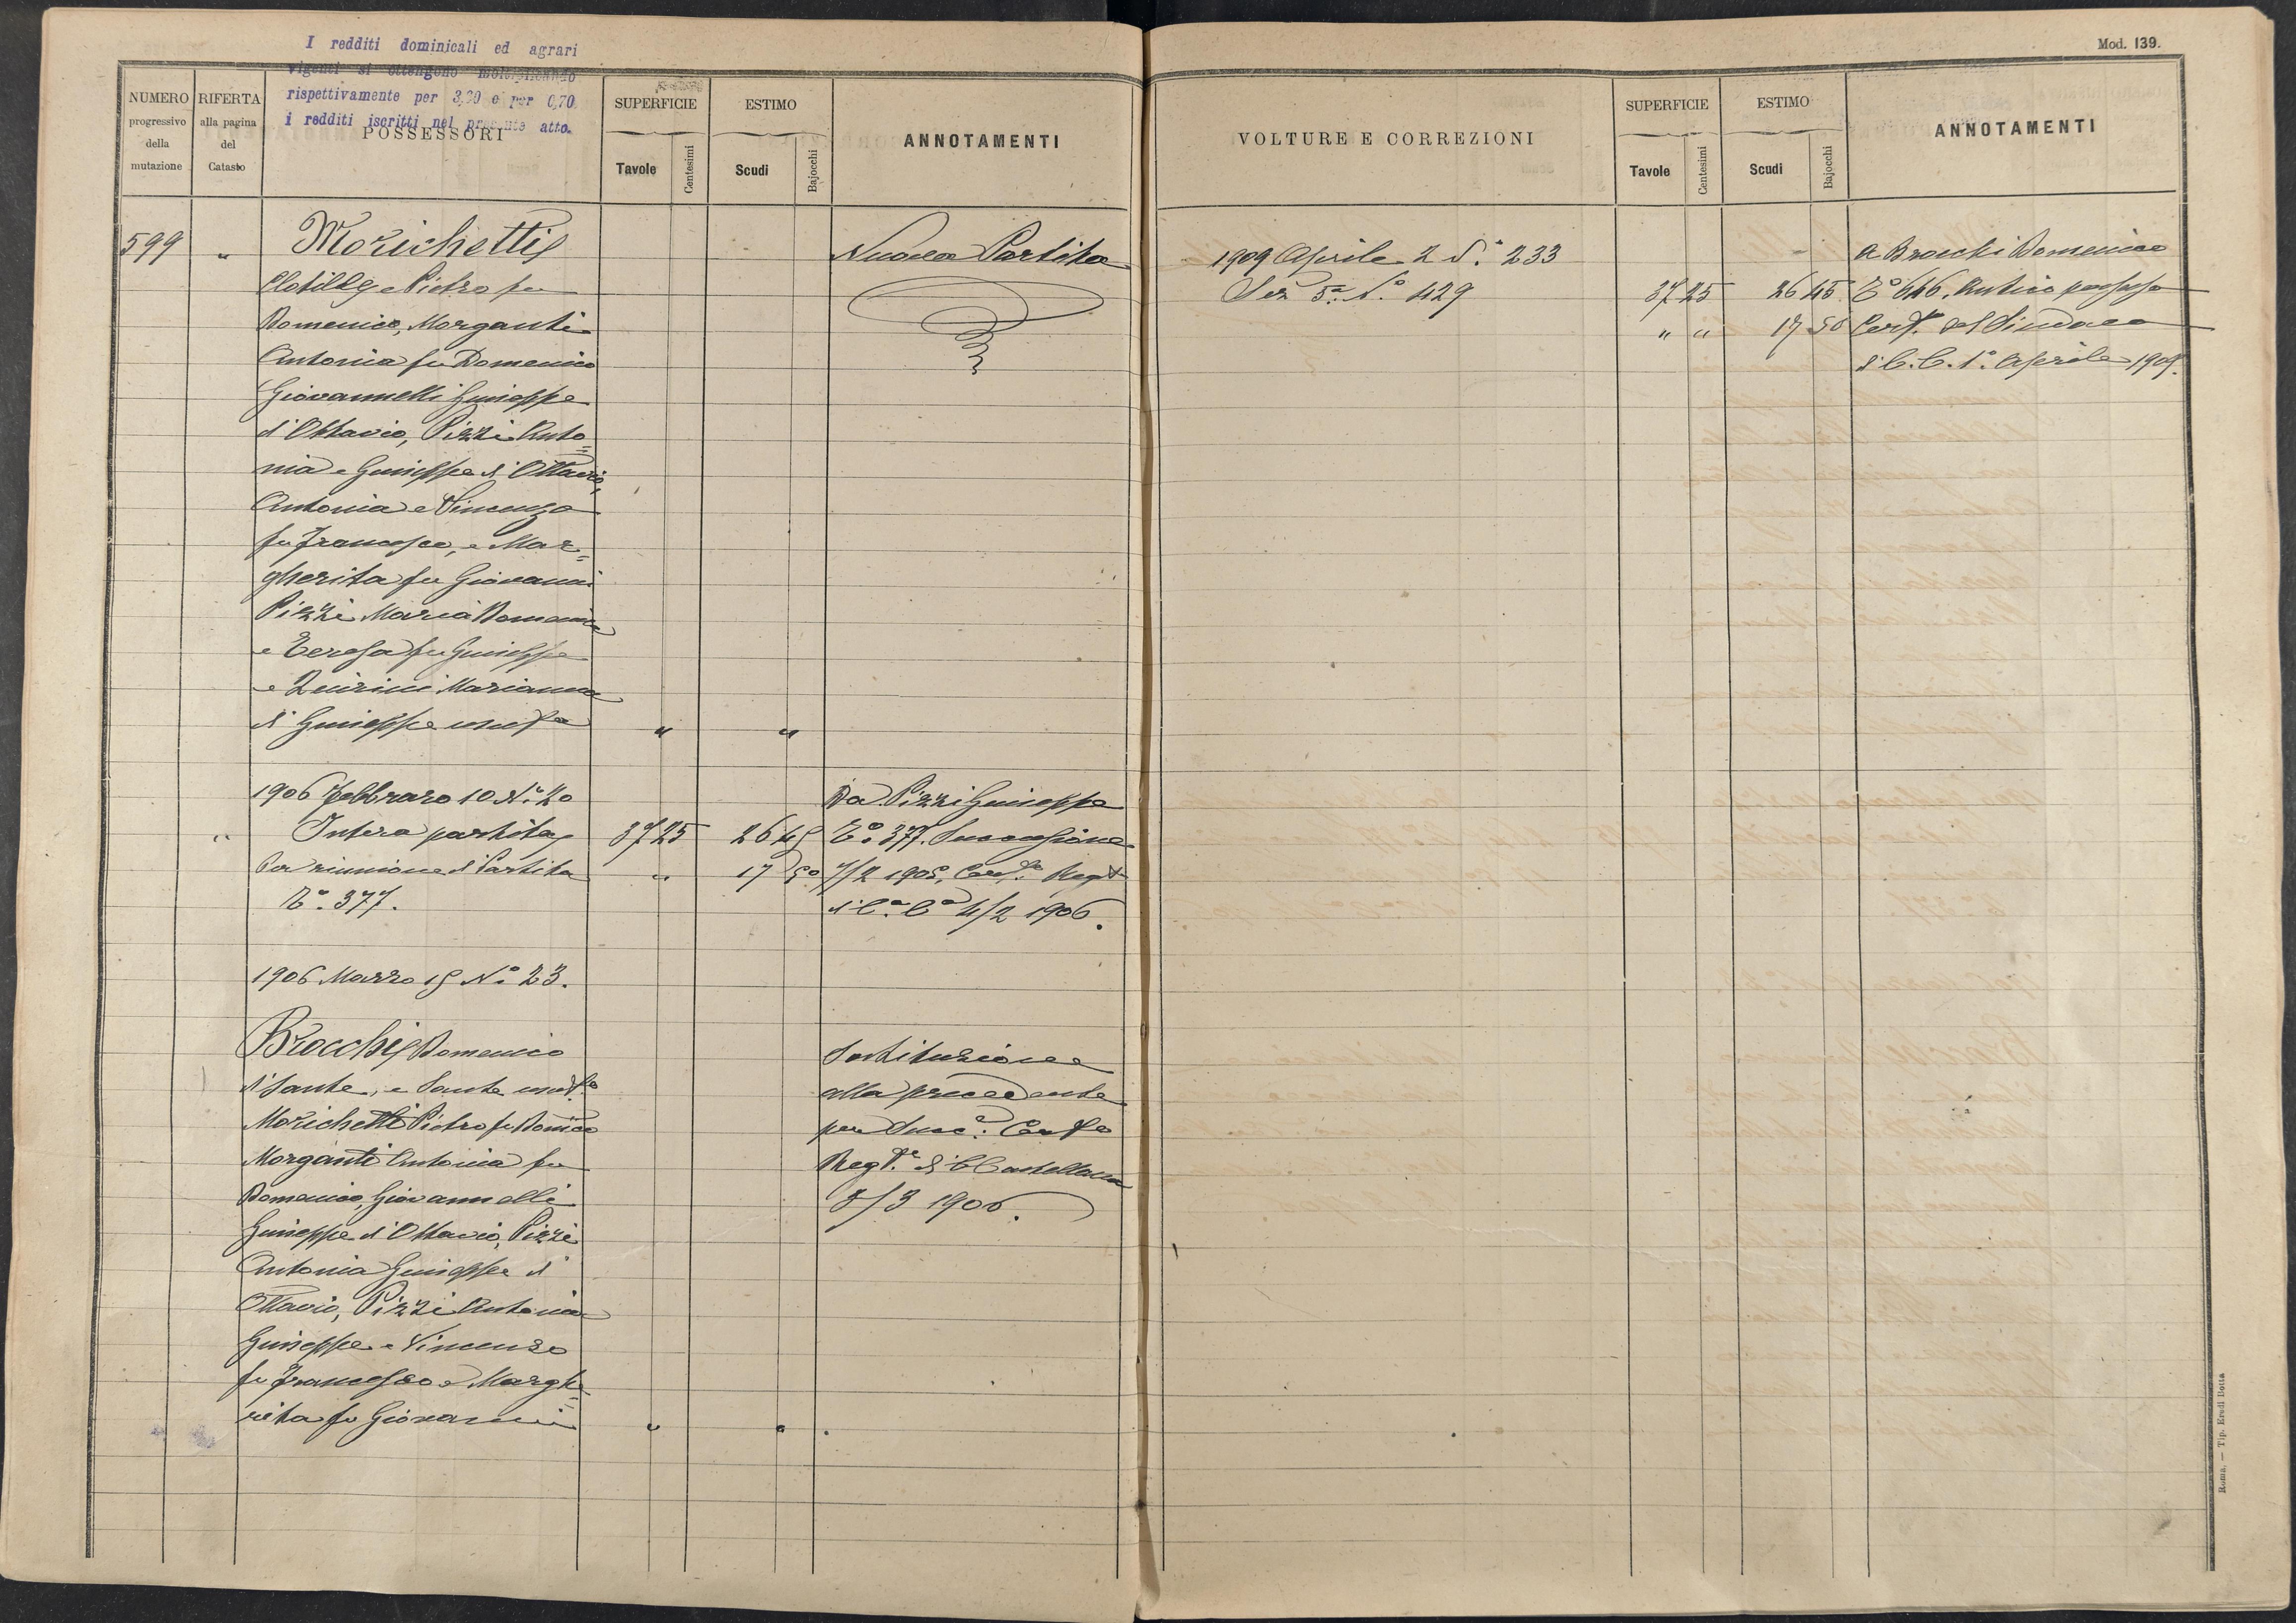 I redditi dominicali ed agrari
vigenti si ottengono moltiplicando
rispettivamente per 3,20 e per 0,70
i redditi iscritti nel presente atto.
Mod. 139.
NUMERO progressivo della mutazione
RIFERTA alla pagina del Catasto
POSSESSORI
SUPERFICIE
Tavole Centesimi
ESTIMO
Scudi Bajocchi
ANNOTAMENTI
599 „ Morichetti
Clotilde e Pietro fu
Domenico, Morganti
Antonia fu Domenico
Giovannelli Giuseppe
d'Ottavio, Pizzi Anto=
nia e Giuseppe d'Ottavio,
Antonia e Vincenzo
fu Francesco, e Mar=
gherita fu Giovanni
Pizzi Maria Domenica
e Teresa fu Giuseppe
e Quirini Marianna
di Giuseppe usufa „ „
Nuova Partita
1906 Febbraro 10 N.º 20
„ Intera partita 37 25 26 45
Per riunione di Partita „ 17 50
Tº. 377.
Da Pizzi Giuseppe
Tº. 377. Successione
7/2 1905, Certo. Regto
di Cª. Cª 4/2 1906.
1906 Marzo 15 Nº. 23.
Brocchi Domenico
di Sante, e Sante usufo
Morichetti Pietro fu Domco
Morganti Antonia fu
Domenico, Giovannelli
Giuseppe d'Ottavio, Pizzi
Antonia Giuseppe d'
Ottavio, Pizzi Antonia
Giuseppe e Vincenzo
fu Francesco e Marghe=
rita fu Giovanni „ „
Sostituzione
alla precedente
per Succe. Certo
Regte. di C Castellana
8/3 1906.
VOLTURE E CORREZIONI
SUPERFICIE
Tavole Centesimi
ESTIMO
Scudi Bajocchi
ANNOTAMENTI
1909 Aprile 2 N.º 233
Ser 5ª. N.º 429 37 25 26 45
„ „ 17 50
a Brocchi Domenico
Tº 646. Antico possesso
Certo. del Sindaco
di C. C. 1º. Aprile 1909.
Roma, — Tip. Eredi Botta